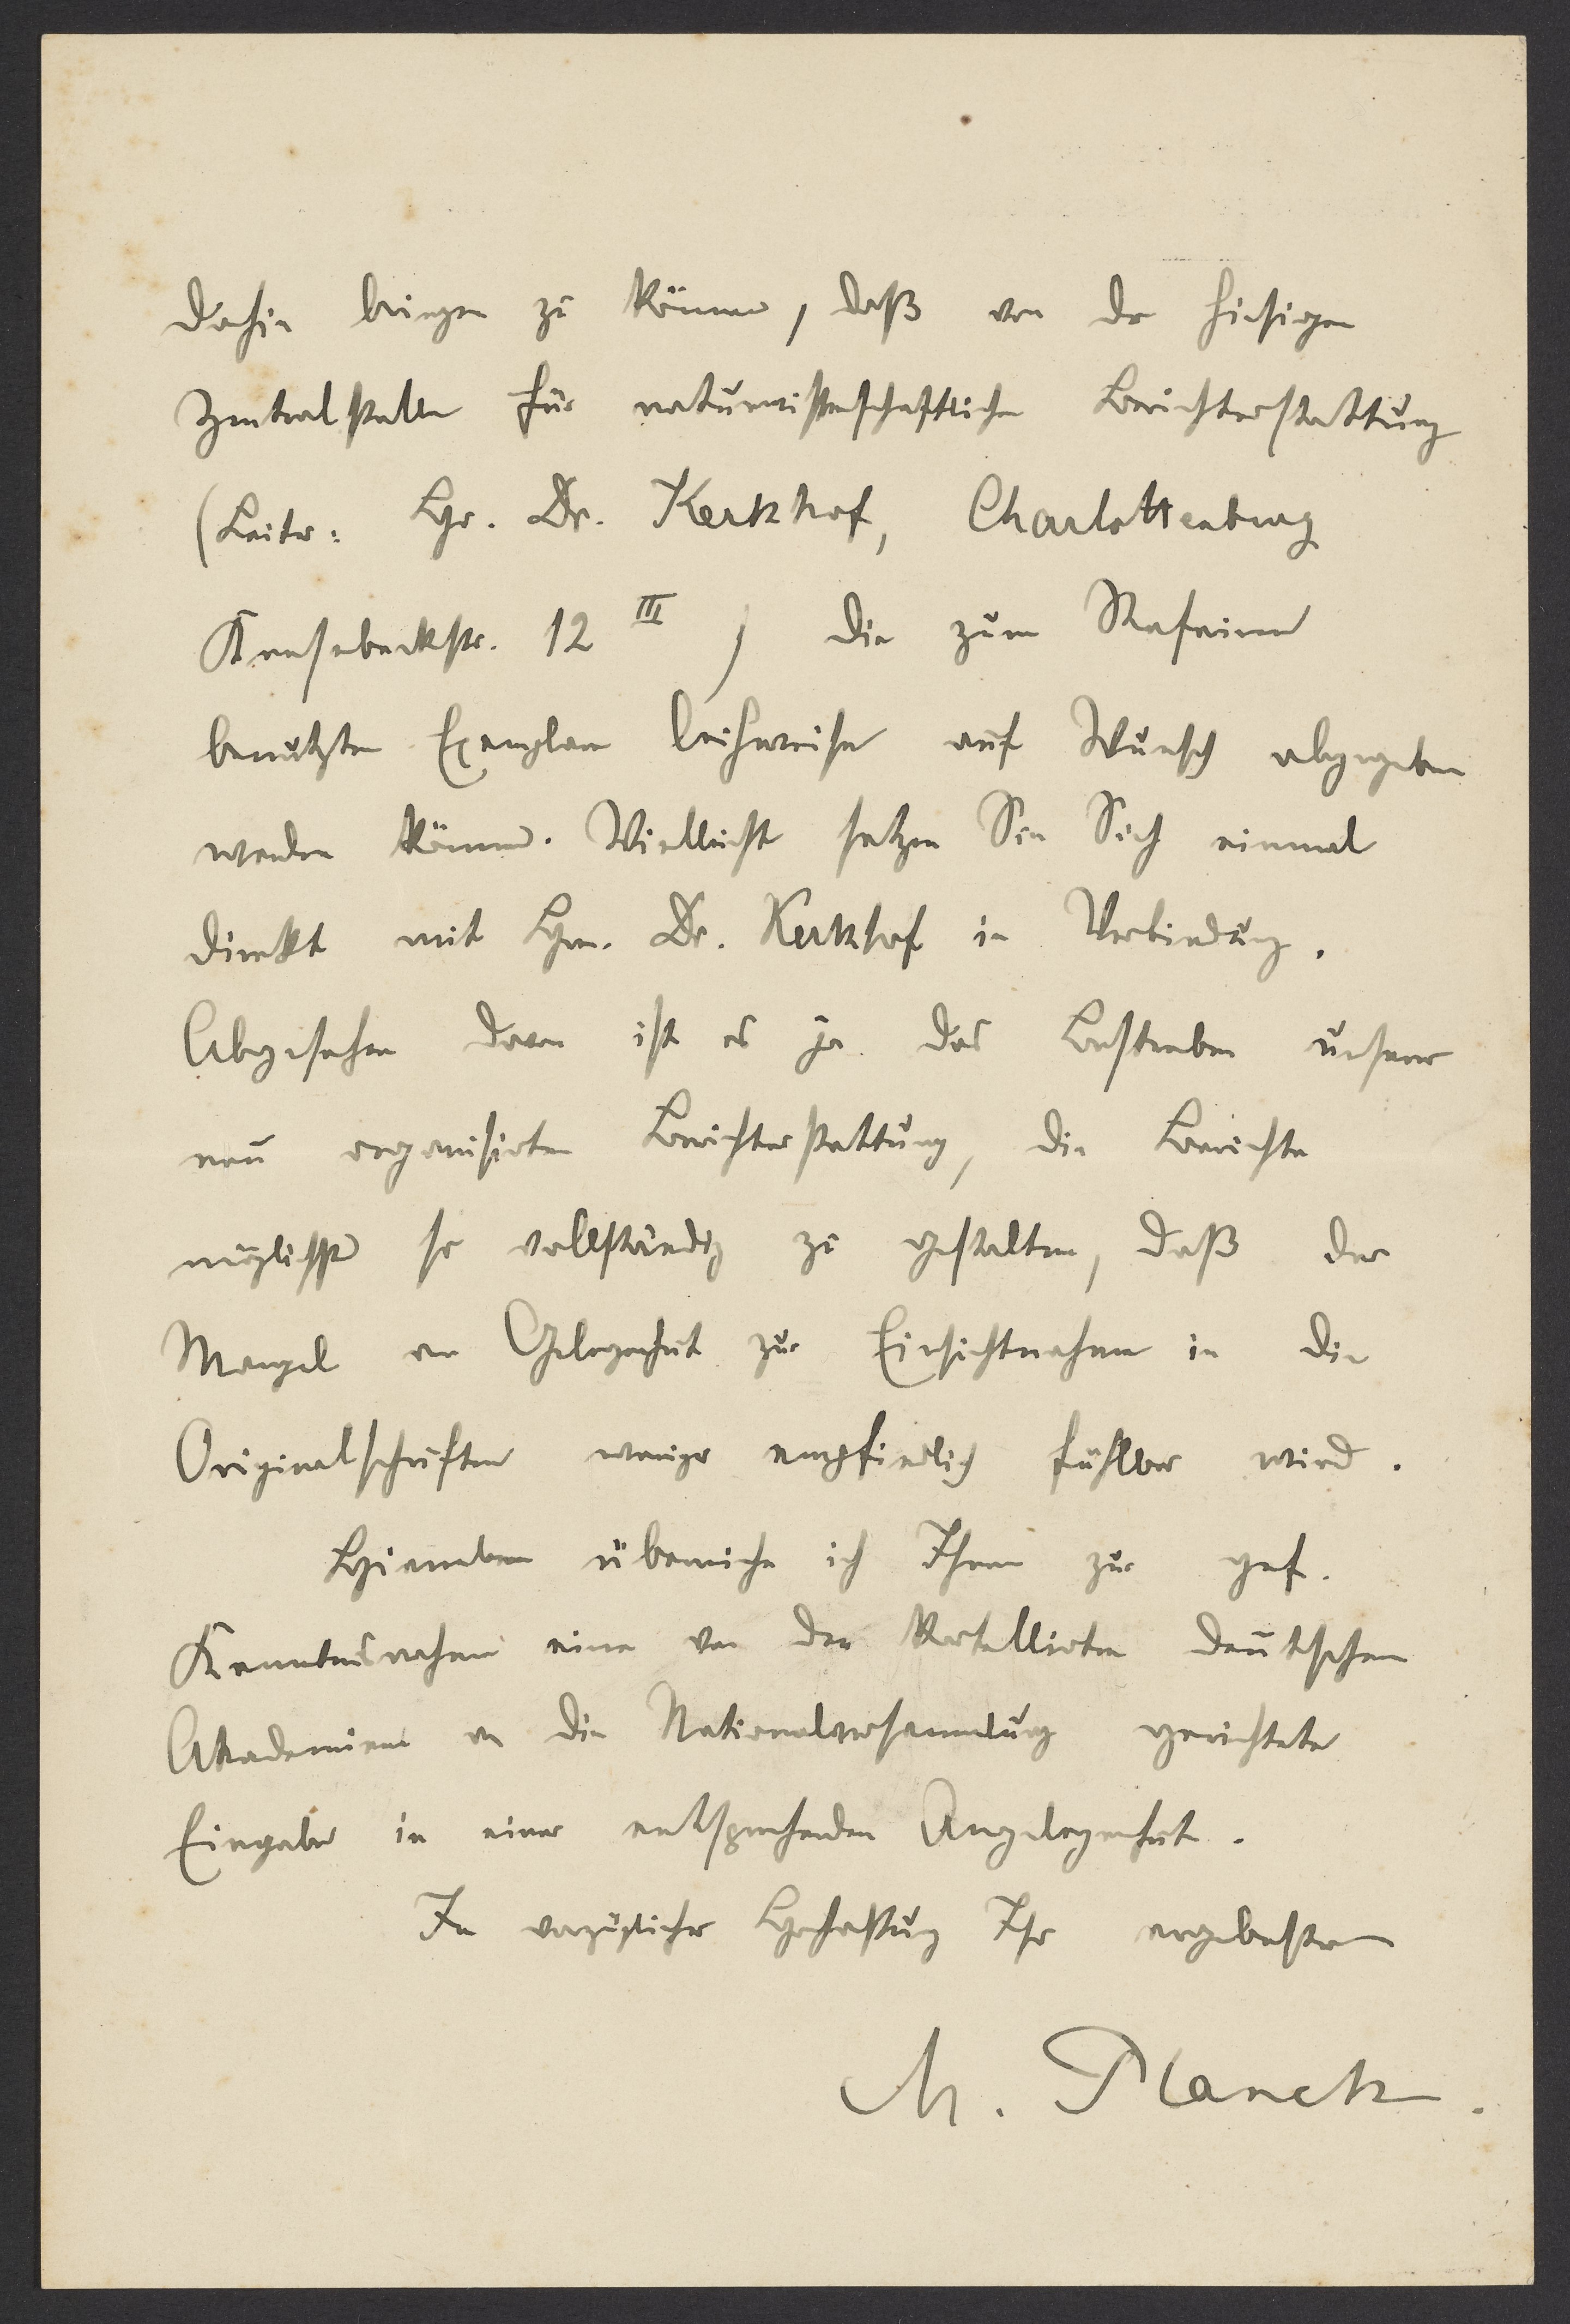 dahin bringen zu können, daß von der hiesigen
Zentralstelle für naturwissenschaftliche Berichterstattung
(Leiter: Hr. Dr. Kerkhof, Charlottenburg
Knesebeckstr. 12 III) die zum Referieren
benutzten Exemplare leihweise auf Wunsch abgegeben
werden können. Vielleicht setzen Sie Sich einmal
direkt mit Hrn. Dr. Kerkhof in Verbindung.
Abgesehen davon ist es ja das Bestreben unserer
neu organisirten Berichterstattung, die Berichte
möglichst so vollständig zu gestalten, daß der
Mangel an Gelegenheit zur Einsichtnahme in die
Originalschriften weniger empfindlich fühlbar wird.
Hierneben überreiche ich Ihnen zur gef.
Kenntnisnahme eine von den kartellirten deutschen
Akademieen an die Nationalversammlung gerichtete
Eingabe in einer entsprechenden Angelegenheit.
In vorzüglicher Hochachtung Ihr ergebenster
M. Planck.